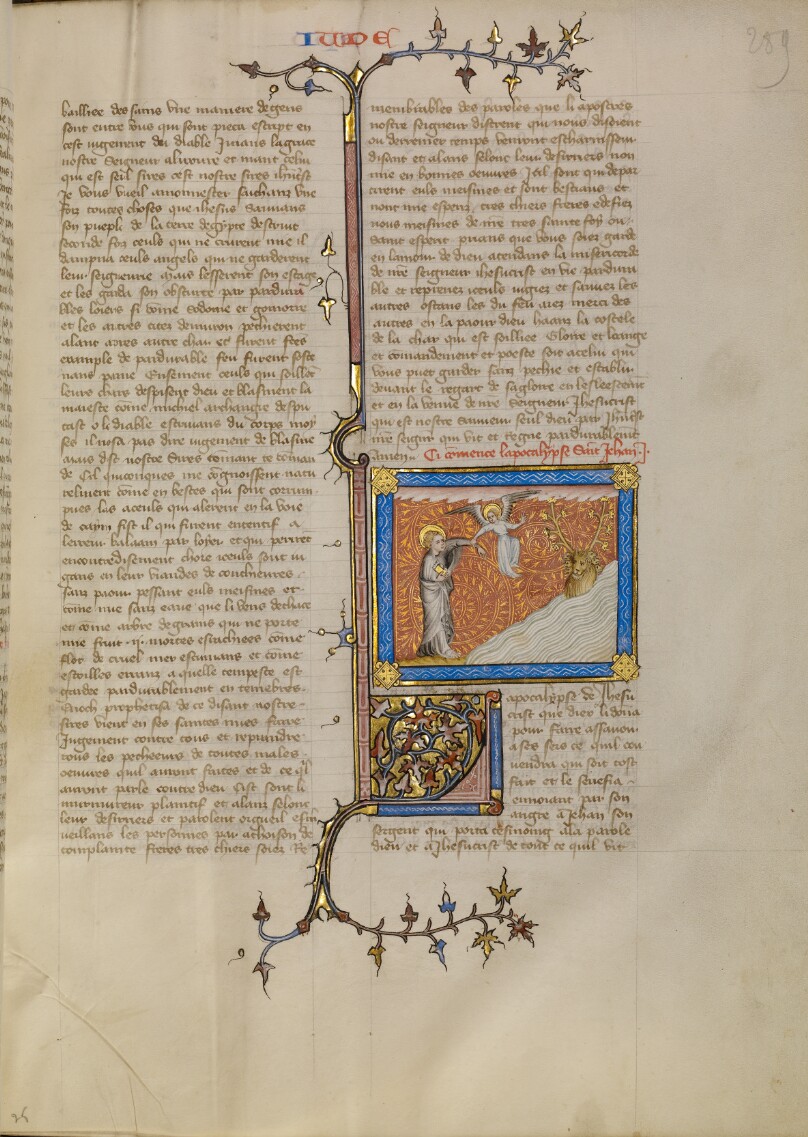 IUDE
289
bailliee des sains Une maniere de gens
sont entre vous qui sont pieca escript en
cest jugement du diable
nostre Seigneur
qui est seul sires cest nostre sires ihucrist
Je vous vueil amonnester sachanz une
foiz toutes choses que ihesus Sauvans
son pueple de la terre degypte destruit
seconde foiz ceuls qui ne crurent mie il
dampna ceuls angels qui ne garderent
leur seigneurie mais lesserent son estage
et les garda son obscurte par pardura
bles loiens si come Sodome et gomorre
et les autres citez denviron pechierent
alant apres autre char et furent fetes
example de pardurable feu
paine Ensement ceuls qui soillent
leurs chars despisent dieu et blasment la
maieste come michiel archangre despu
tast o le diable du corps moy
ses il nosa pas dire jugement de blasme
mais dist nostre Sires
de Cil quiconques ne cognoissent natu
relment come en bestes qui sont
en la voie
de caym fist il qui furent
balaam par loyer et qui
chore iceuls sont
en leur viandes de
sanz paour pessant euls meismes et
come nue sanz eaue que li vens dechace
et come arbre de qui ne porte
mie fruit .ij. mortes esrachiees come
flot de cruel mer escumans et come
estoilles erranz a quelle tempeste est
gardee pardurablement en tenebres.
Enoch prophetisa de ce disant nostre
sires vient en ses saintes mues faire
Jugement contre tous et reprendre
tous les pecheeurs de toutes males
oeuvres quil auront faites et de ce quil
auront parle contre dieu Cist sont li
murmureur plaintif et alanz selonc
leur desirriers et parolent orgueil
veillans les personnes par achoison de
complainte freres tres chiers soiez Re
membrables des paroles que li apostres
nostre seigneur distrent qui nous disoient
ou derrenier temps venront
disant et alans selonc leur desirriers non
mie en bonnes oeuvres Icil sont qui depar
tirent euls meismes et sont bestiaus et
nont mie esperit tres chiers freres edefiez
vous meismes de nre tres sainte foy ou
saint esperit prians que vous soiez garde
en lamour de dieu atendans la misericorde
de nre seigneur ihesucrist en vie pardura
ble et reprenez iceuls jugiez et sauvez les
autres ostans les du feu aiez merci des
autres en la paour dieu la costele
de la char qui est soilliee Gloire et loange
et comandement et poeste soit a celui qui
vous puet garder sanz pechie et establir
devant le regart de sa gloire en
et en la venue de nre Seigneur Ihesucrist
qui est nostre Sauveur seul dieu par ihucrist
nre seigneur qui vit et regne pardurablement
amen. Ci comence lapocalypse Saint Jehan.
apocalypse de Ihesu
crist que diex li dona
pour faire assavoir
a ses sers ce quil con
vendra qui soit tost
fait et le senefia
envoiant par son
angre a Jehan son
sergent qui porta tesmoing a la parole
dieu et a Ihesucrist de tout ce quil vit